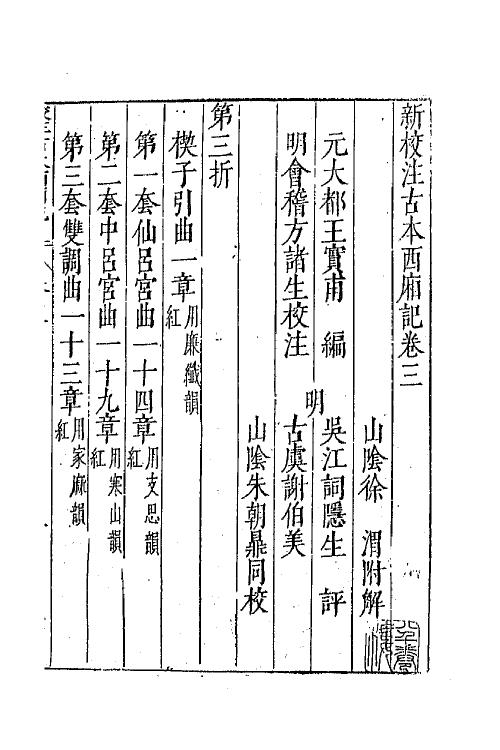 新校注古本西廂記卷三
山陰徐　渭附解
元大都王實甫　編
吳江詞隱生　評
明
明會稽方諸生校注
古虞謝伯美
山陰朱朝鼎同校
第三折
楔子引曲一章用廉纖韻
紅
第一套仙呂宮曲一十四章用支思韻
紅
第二套中呂宮曲一十九章用寒山韻
紅
第三套雙調曲一十三章用家麻韻
紅